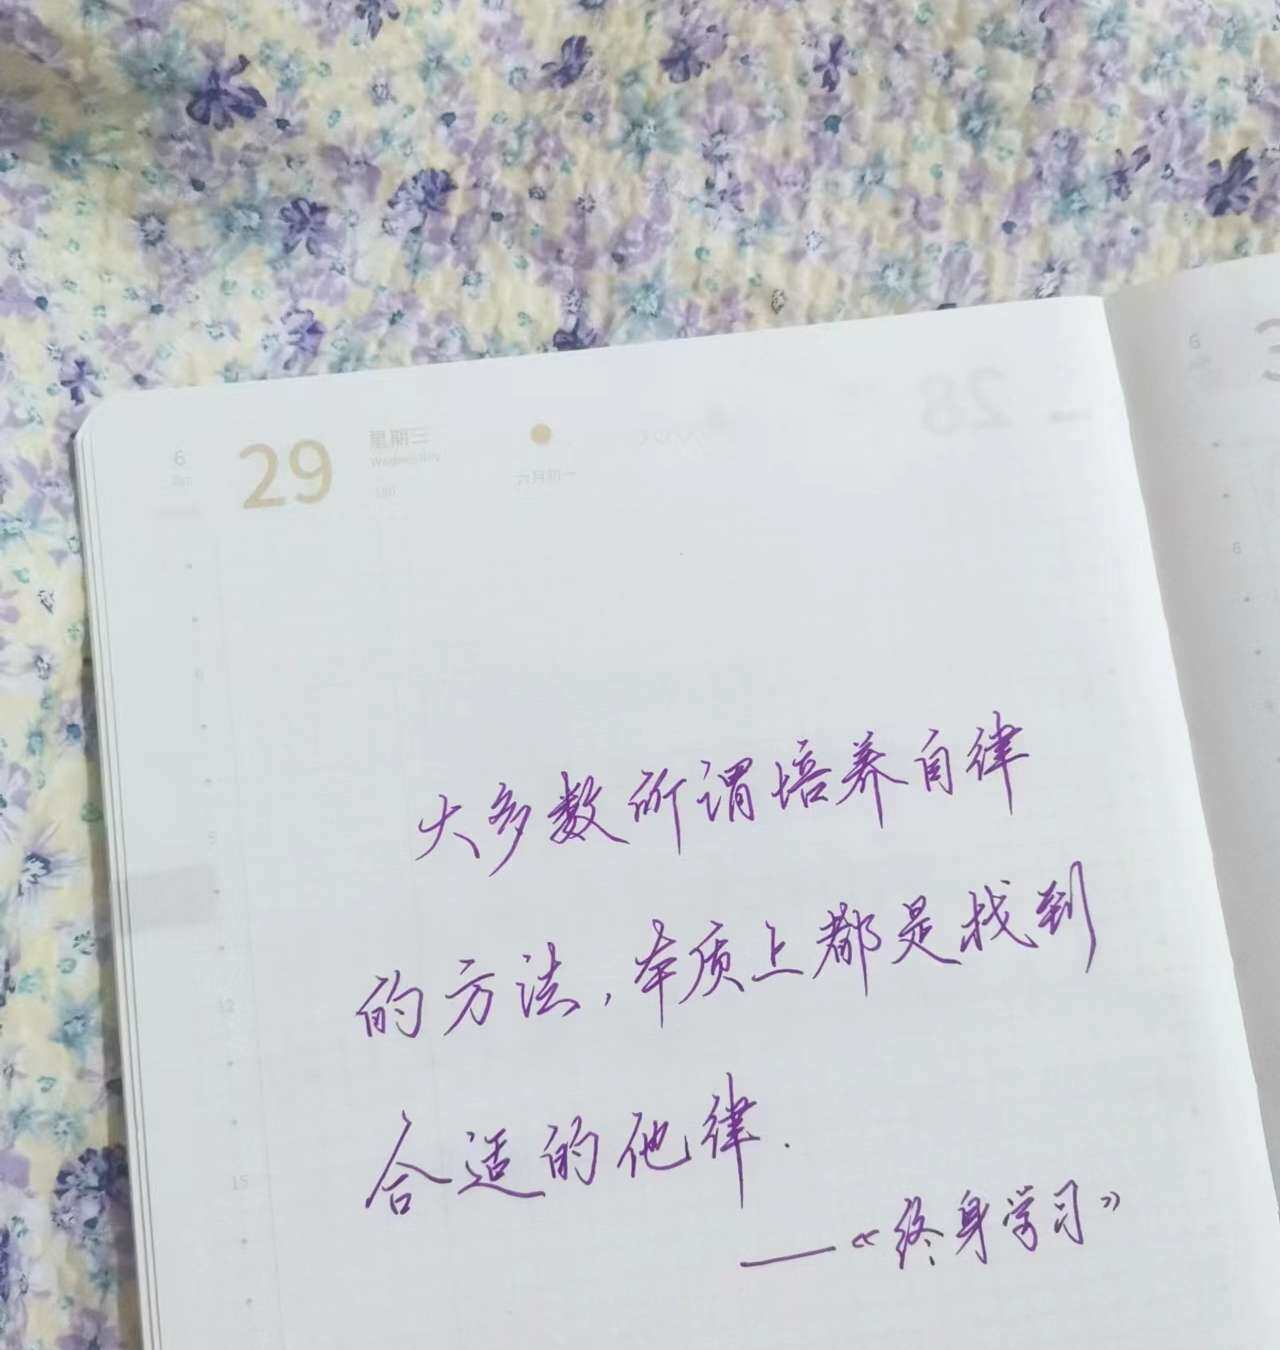 6
29
星期三
Wednesday
180
六月初一
28
6
3
6
6
9
12
15
大多数所谓培养自律
的方法,本质上都是找到
合适的他律.
——《终身学习》